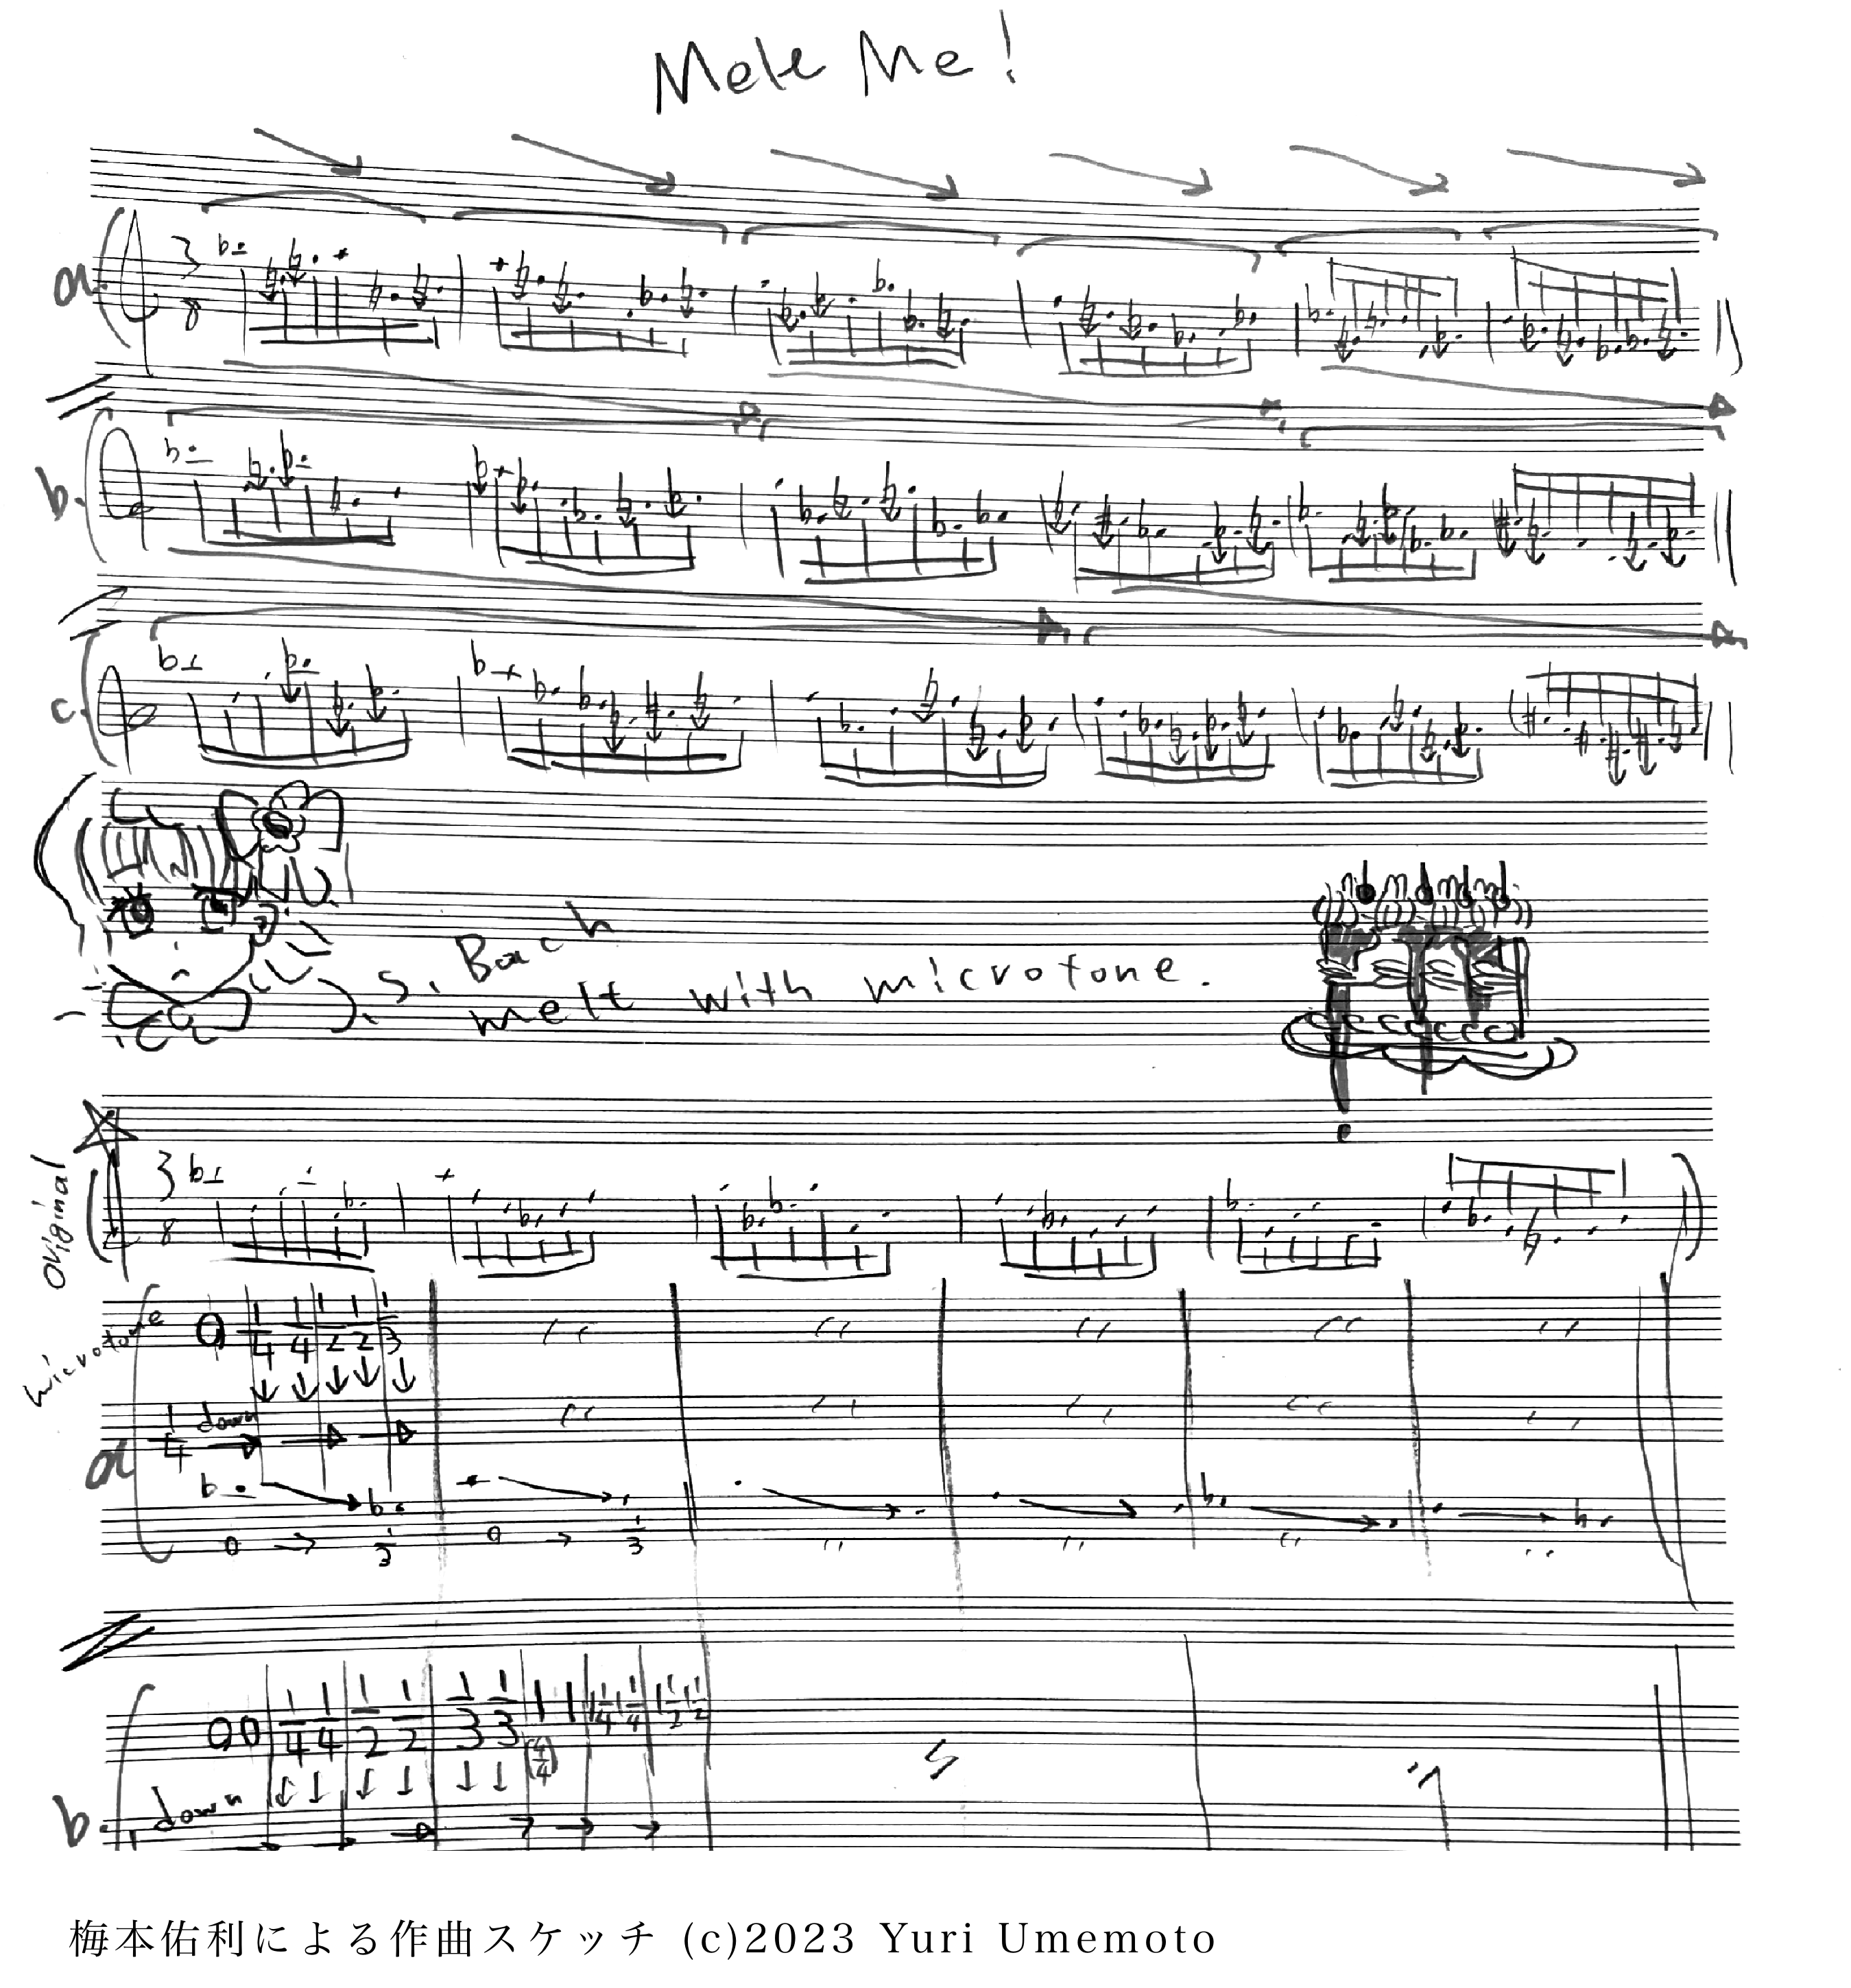 Melt Me!
3
8
a.
b.
c.
S. Bach
melt with microtone.
original
3
8
microtone
0 1/4 1/4 1/2 1/2 1/3
a
1/4 down
0 → 1/3 0 → 1/3
0 0 1/4 1/4 1/2 1/2 1/3 1/3 1 1 1 1/4 1 1/4 1 1/2 1 1/2
(4/4)
b. down
梅本佑利による作曲スケッチ (c)2023 Yuri Umemoto